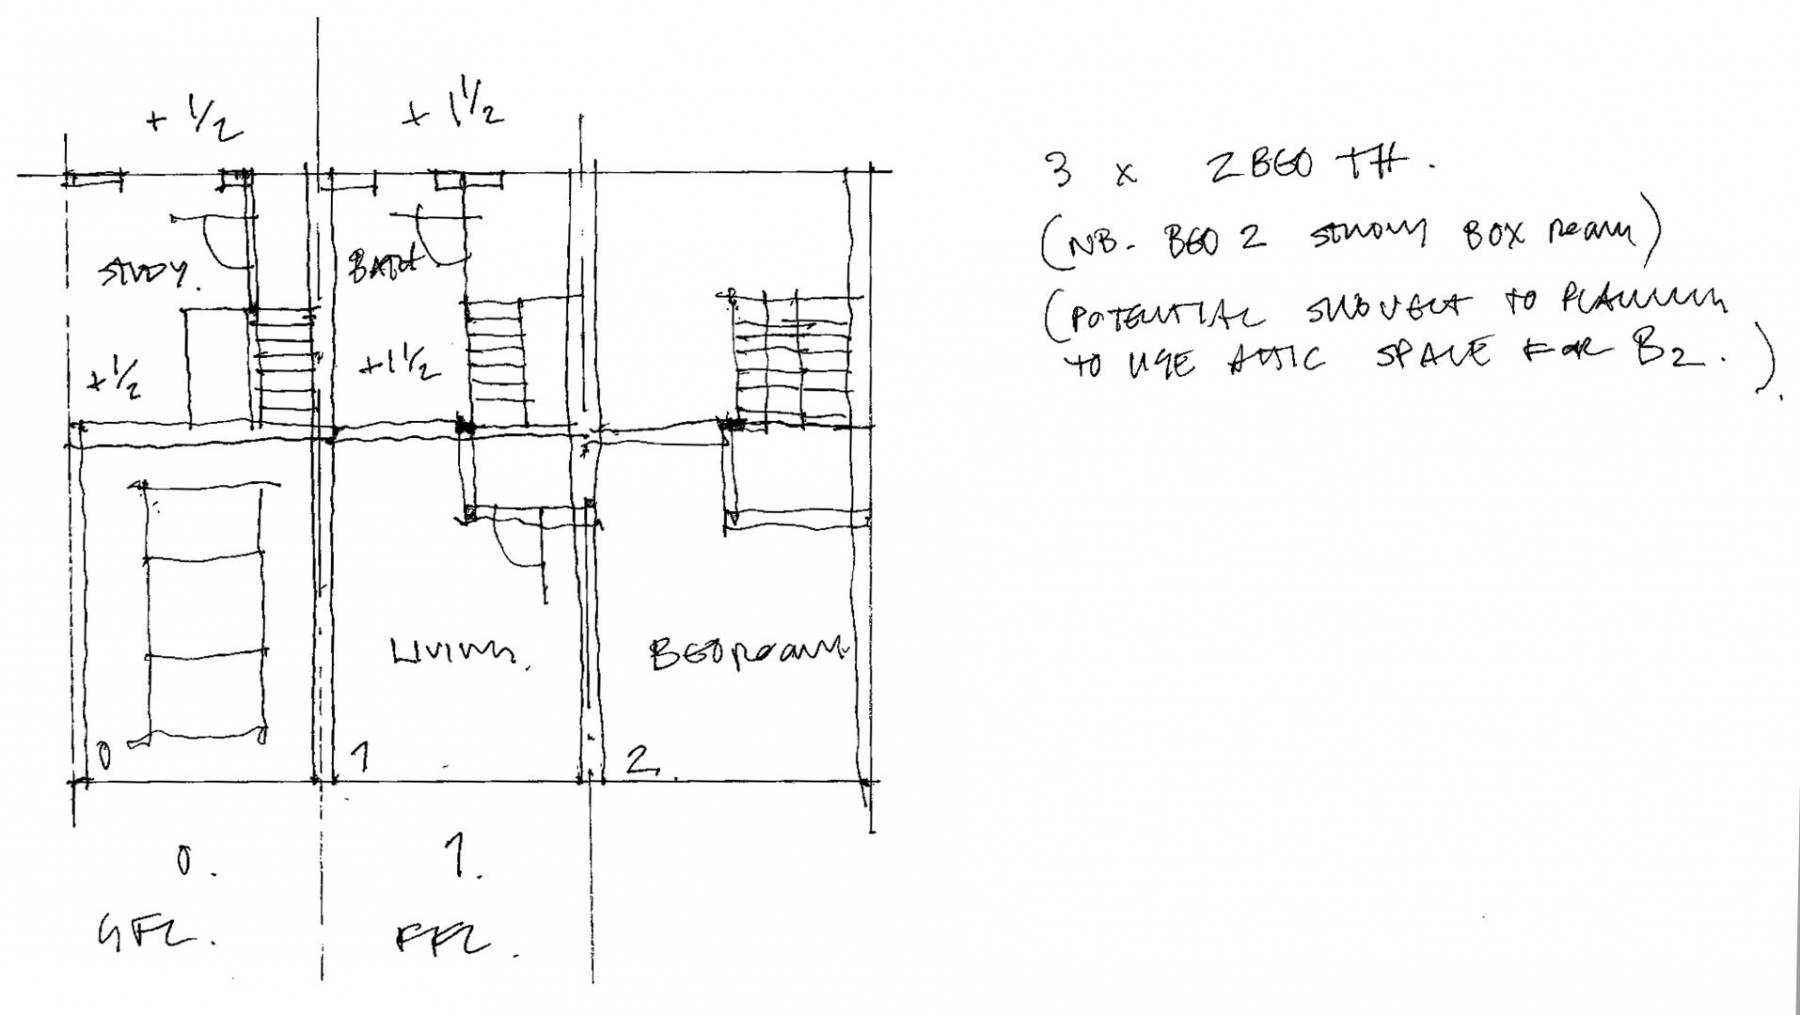 + 1/2
+ 1 1/2
STUDY.
BATH
+1/2
+1 1/2
LIVING.
BEDROOM
0
1
2.
0.
1.
GFL.
FFL.
3 x 2 BED TH.
(NB. BED 2 STUDY BOX ROOM)
(POTENTIAL SUBJECT TO PLANNING
TO USE ATTIC SPACE FOR B2.).